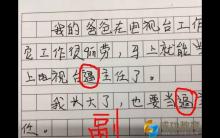 我的爸爸在电视台工作
实工作很辛劳，马上就能当
上电视台逼主任了。
我长大了，也要当逼主
任。
副